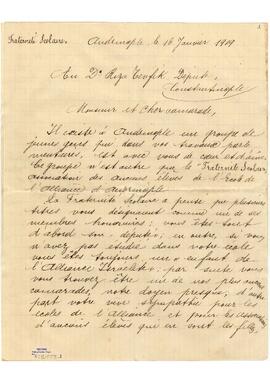 Fraternité Scolaire.
Andrinople le 16 Janvier 1909
Au Dr Riza Tevfik Député,
Constantinople
Monsieur et Cher camarade,
Il existe à Andrinople un groupe de
jeunes gens qui dans vos travaux parle-
mentaires, est avec vous de cœur et d'âme.
Ce groupe n'est autre que la Fraternité Scolaire
association des anciens élèves de l'École de
de l'Alliance d'Andrinople.
La Fraternité Scolaire a pensé que plusieurs
titres vous désignaient comme un de ses
membres honoraires; vous êtes tout
d'abord son député; en outre, si vous
n'avez pas étudié dans notre école
vous êtes toujours, un "enfant de
l'Alliance Israélite"; par suite vous
vous trouvez être un de nos plus anciens
camarades, notre doyen presque; d'autre
part votre vive sympathie pour les
écoles de l'Alliance et pour les associations
d'anciens élèves qui en sont les filles,